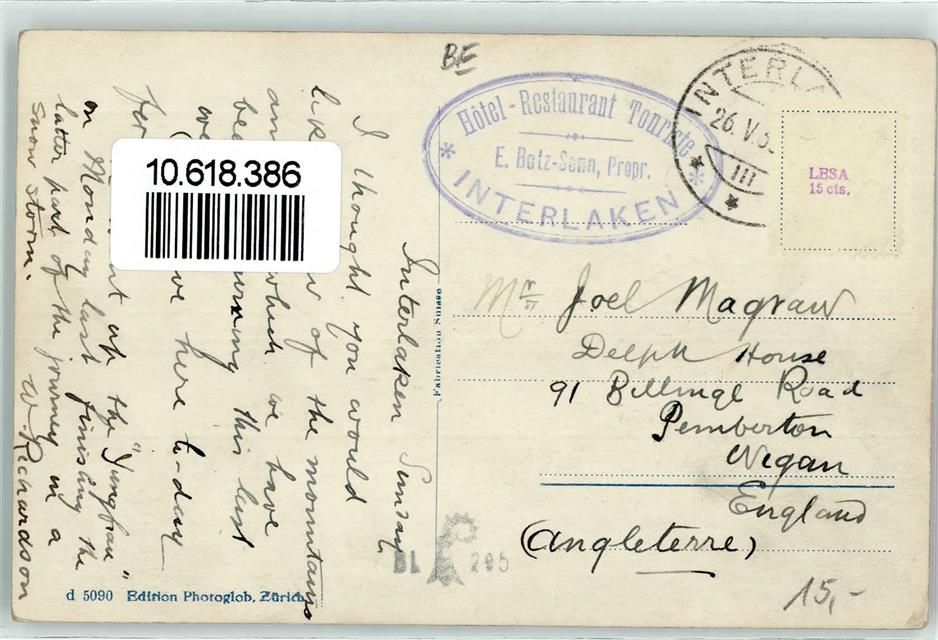 BE
Hôtel-Restaurant Touriste
E. Botz-Senn, Propr.
* INTERLAKEN *
INTERL
26. V.
III
LBSA
15 cts.
10.618.386
Interlaken Sunday
I thought you would
like of the mountains
which we have
this last
we here to-day
up the "Jungfrau"
on Monday last finishing the
latter part of the journey in a
snow storm.
W. Richardson
Fabrication Suisse
Joel Magraw
Delph House
91 Billinge Road
Pemberton
Wigan
England
(Angleterre)
BL 295
15,-
d 5090 Edition Photoglob, Zürich